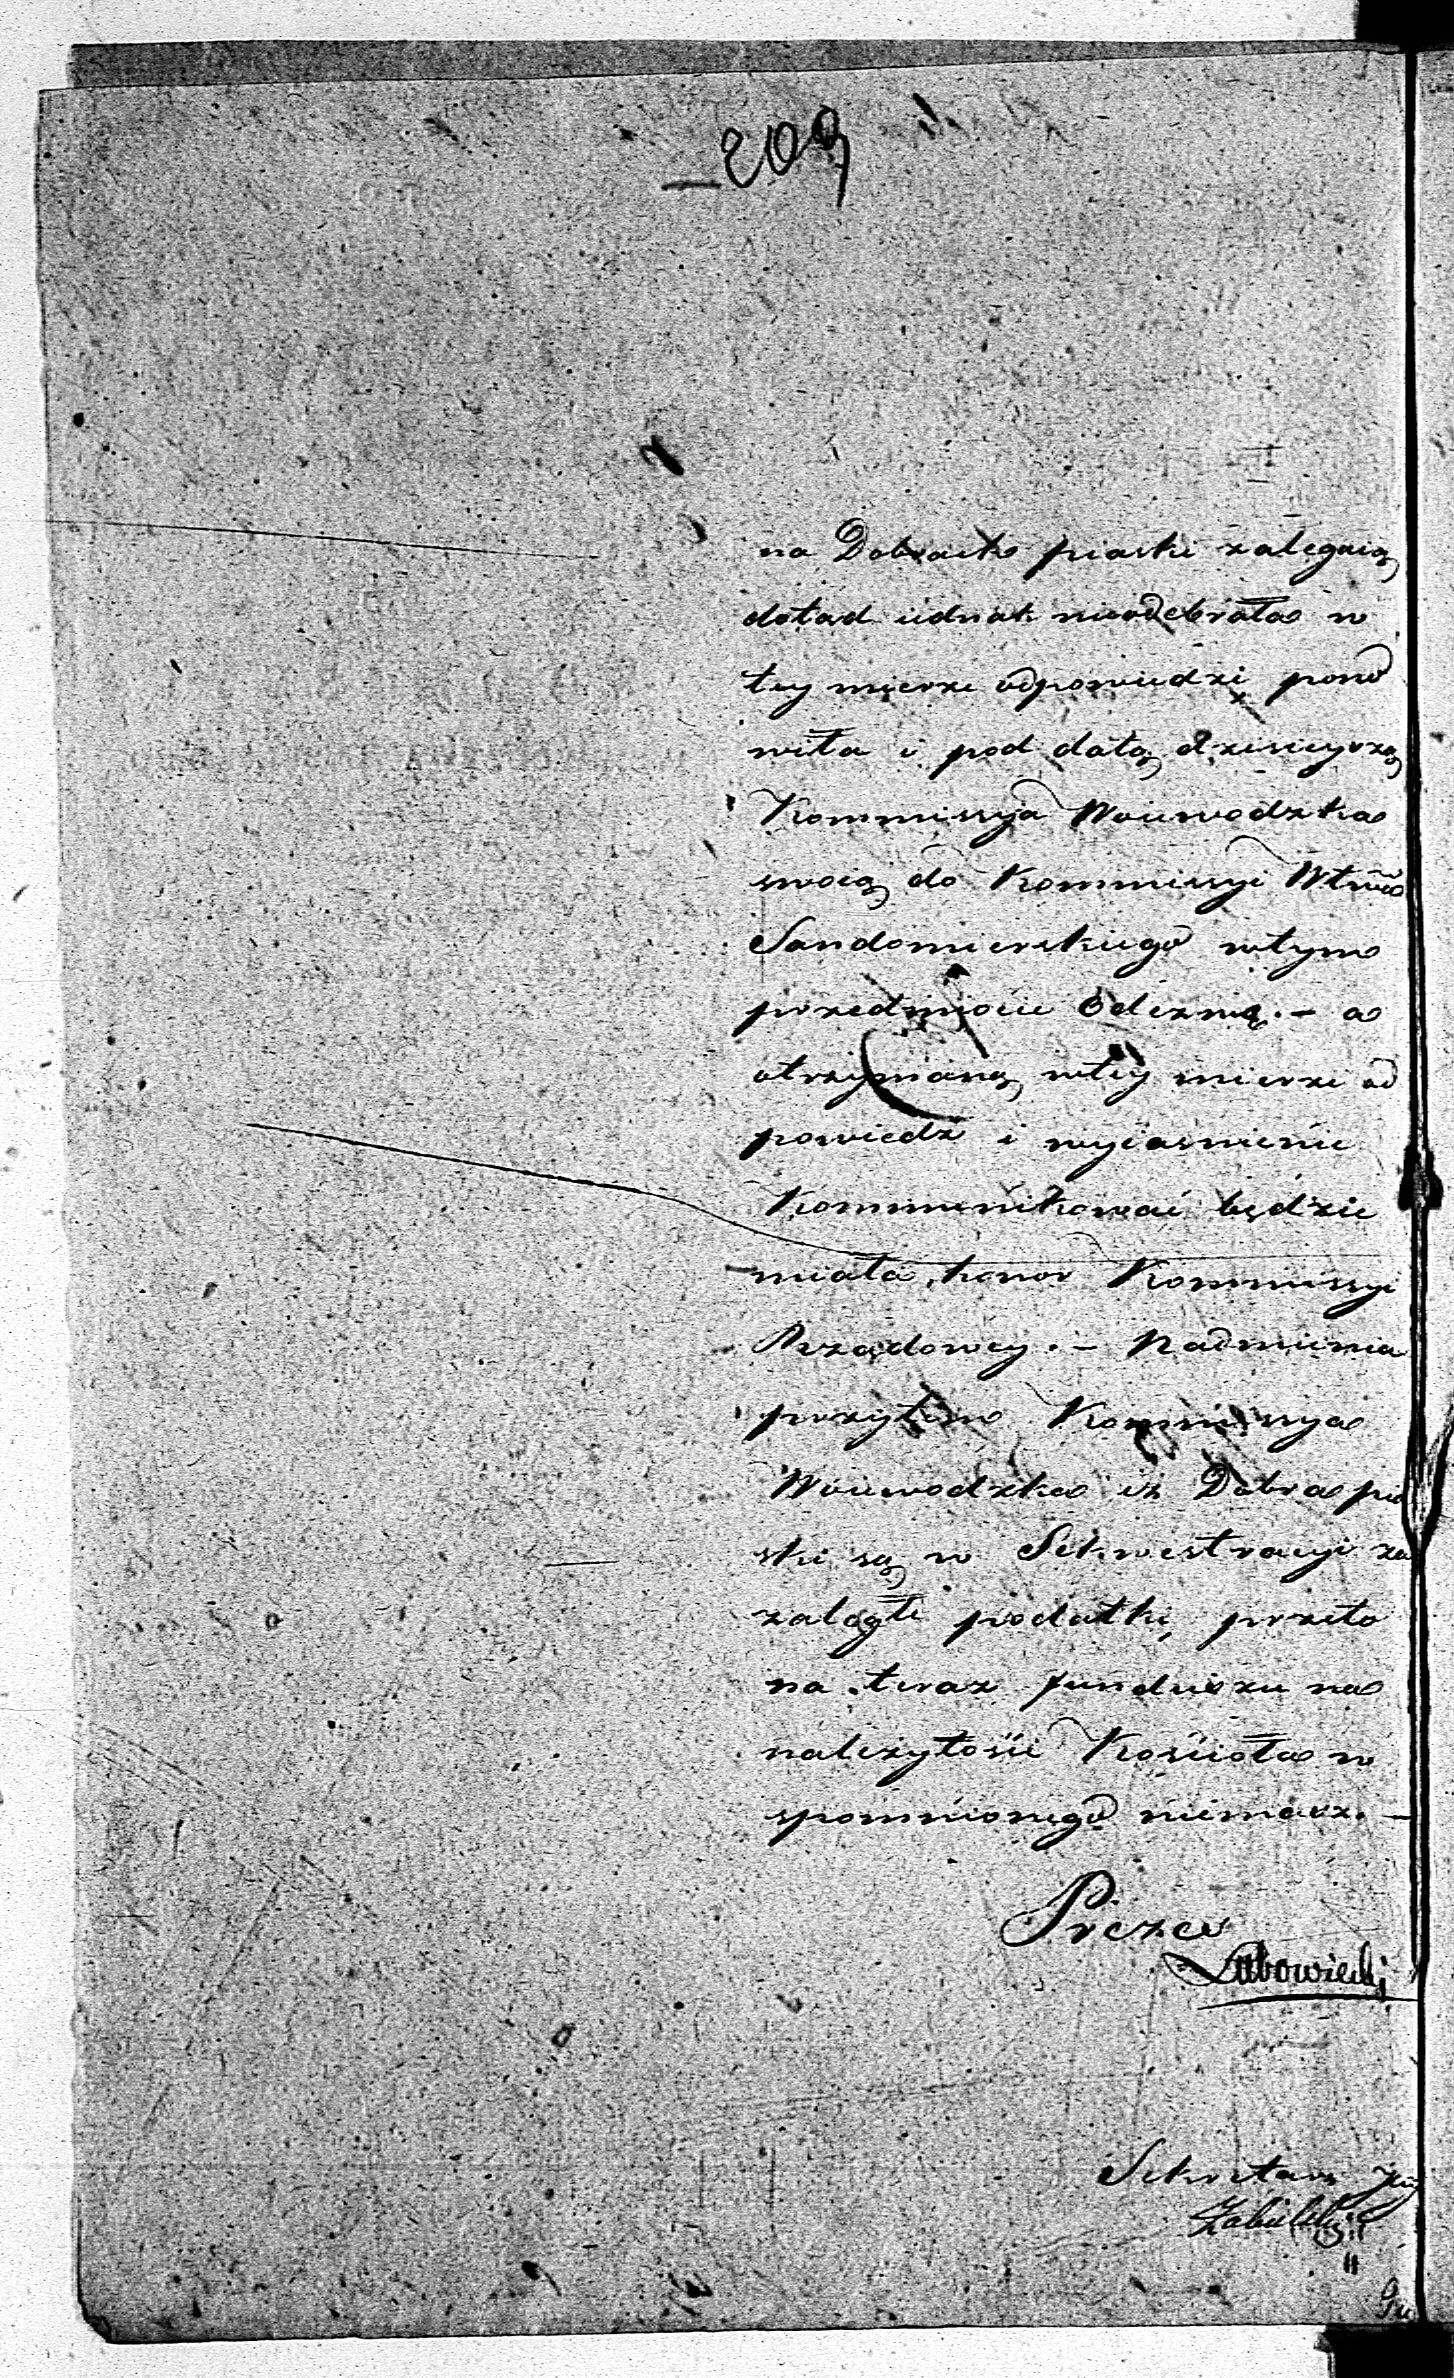 209
na Dobrach piaski zalegaią
dotąd iednak nieodebrała w
tey mierze odpowiedzi pono
wiła i pod datą dzisieyszą
Kommissya Woiewodzka
swoią do Kommissyi Wtwa
Sandomierskiego wtym
przedmiocie Odezwę. – a
otrzymaną wtey mierze od
powiedz i wyiasnienie
Kommunikować będzie
miała honor Kommissyi
Rządowey. – Nadmienia
przytem Kommissya
Woiewodzka iż Dobra pia
ski są w Sekwestracyi za
zaległe podatki, przeto
na teraz funduszu na
należytości Kościoła w
spomnionego niemasz. –
Prezes
Sekretarz